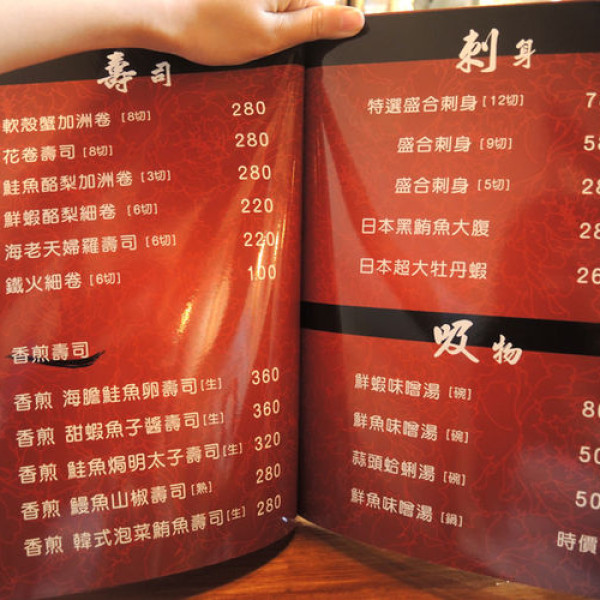 壽司
軟殼蟹加洲卷 [8切] 280
花卷壽司 [8切] 280
鮭魚酪梨加洲卷 [3切] 280
鮮蝦酪梨細卷 [6切] 220
海老天婦羅壽司 [6切] 220
鐵火細卷 [6切] 100
香煎壽司
香煎 海膽鮭魚卵壽司 [生] 360
香煎 甜蝦魚子醬壽司 [生] 360
香煎 鮭魚焗明太子壽司 [生] 320
香煎 鰻魚山椒壽司 [熟] 280
香煎 韓式泡菜鮪魚壽司 [生] 280
刺身
特選盛合刺身 [12切]
盛合刺身 [9切]
盛合刺身 [5切]
日本黑鮪魚大腹
日本超大牡丹蝦
吸物
鮮蝦味噌湯 [碗]
鮮魚味噌湯 [碗]
蒜頭蛤蜊湯 [碗]
鮮魚味噌湯 [鍋] 時價